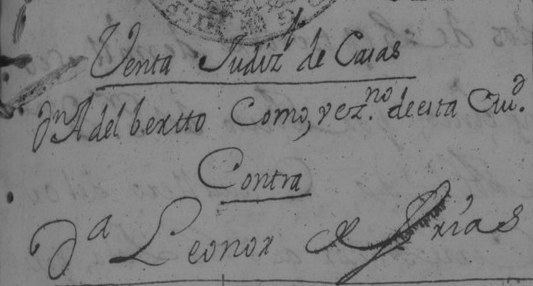 Venta Judiz.l de Casas
Dn Adelbertto Como, vez.no de esta Ciud.
Contra
Da Leonor de Frías